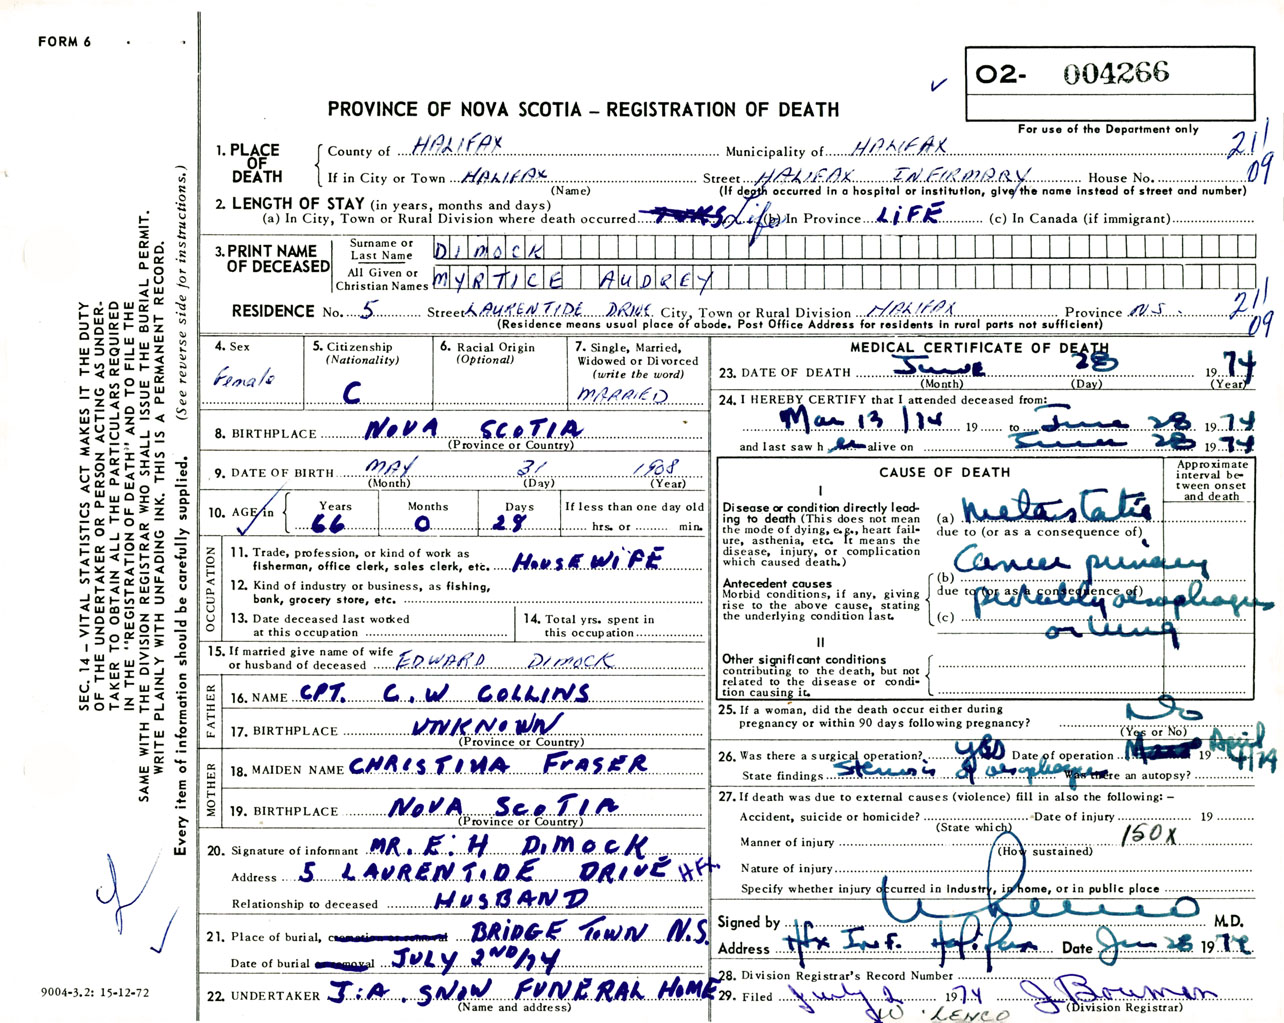 FORM 6
O2- 004266
PROVINCE OF NOVA SCOTIA – REGISTRATION OF DEATH
For use of the Department only
211
09
1. PLACE OF DEATH
County of HALIFAX Municipality of HALIFAX
If in City or Town HALIFAX Street HALIFAX INFIRMARY House No.
(Name) (If death occurred in a hospital or institution, give the name instead of street and number)
2. LENGTH OF STAY (in years, months and days)
(a) In City, Town or Rural Division where death occurred Life (b) In Province LIFE (c) In Canada (if immigrant)
3. PRINT NAME OF DECEASED
Surname or Last Name DIMOCK
All Given or Christian Names MYRTICE AUDREY
RESIDENCE No. 5 Street LAURENTIDE DRIVE City, Town or Rural Division HALIFAX Province N.S.
(Residence means usual place of abode. Post Office Address for residents in rural parts not sufficient)
211
09
4. Sex
Female
5. Citizenship
(Nationality)
C
6. Racial Origin
(Optional)
7. Single, Married, Widowed or Divorced
(write the word)
MARRIED
8. BIRTHPLACE NOVA SCOTIA
(Province or Country)
9. DATE OF BIRTH MAY 31 1908
(Month) (Day) (Year)
10. AGE in
Years Months Days If less than one day old
66 0 28 hrs. or min.
OCCUPATION
11. Trade, profession, or kind of work as
fisherman, office clerk, sales clerk, etc. HOUSEWIFE
12. Kind of industry or business, as fishing,
bank, grocery store, etc.
13. Date deceased last worked
at this occupation
14. Total yrs. spent in
this occupation
15. If married give name of wife
or husband of deceased EDWARD DIMOCK
FATHER
16. NAME CPT. C.W COLLINS
17. BIRTHPLACE UNKNOWN
(Province or Country)
MOTHER
18. MAIDEN NAME CHRISTINA FRASER
19. BIRTHPLACE NOVA SCOTIA
(Province or Country)
20. Signature of informant MR. E. H DIMOCK
Address 5 LAURENTIDE DRIVE HFX
Relationship to deceased HUSBAND
21. Place of burial, BRIDGE TOWN N.S.
Date of burial JULY 2ND/74
22. UNDERTAKER J.A. SNOW FUNERAL HOME
(Name and address)
MEDICAL CERTIFICATE OF DEATH
23. DATE OF DEATH June 28 1974
(Month) (Day) (Year)
24. I HEREBY CERTIFY that I attended deceased from:
Mar 13/74 19 to June 28 1974
and last saw h er alive on June 28 1974
CAUSE OF DEATH
Approximate interval between onset and death
I
Disease or condition directly leading to death (This does not mean the mode of dying, e.g., heart failure, asthenia, etc. It means the disease, injury, or complication which caused death.)
(a) Metastatic
due to (or as a consequence of)
Cancer primary
Antecedent causes
Morbid conditions, if any, giving rise to the above cause, stating the underlying condition last.
(b)
due to (or as a consequence of)
probably oesophagus
(c)
or lung
II
Other significant conditions
contributing to the death, but not related to the disease or condition causing it.
25. If a woman, did the death occur either during
pregnancy or within 90 days following pregnancy? No
(Yes or No)
26. Was there a surgical operation? yes Date of operation 19 April 4/74
State findings Stenosis of oesophagus Was there an autopsy?
27. If death was due to external causes (violence) fill in also the following: –
Accident, suicide or homicide? Date of injury 19
(State which)
Manner of injury 150X
(How sustained)
Nature of injury
Specify whether injury occurred in Industry, in home, or in public place
Signed by M.D.
Address Hfx Inf. Halifax Date Jun 28 1974
28. Division Registrar's Record Number
29. Filed July 2 1974 J. Bowmen
(Division Registrar)
SEC. 14 – VITAL STATISTICS ACT MAKES IT THE DUTY
OF THE UNDERTAKER OR PERSON ACTING AS UNDER-
TAKER TO OBTAIN ALL THE PARTICULARS REQUIRED
IN THE "REGISTRATION OF DEATH" AND TO FILE THE
SAME WITH THE DIVISION REGISTRAR WHO SHALL ISSUE THE BURIAL PERMIT.
WRITE PLAINLY WITH UNFADING INK. THIS IS A PERMANENT RECORD.
Every item of information should be carefully supplied. (See reverse side for instructions.)
9004-3.2: 15-12-72